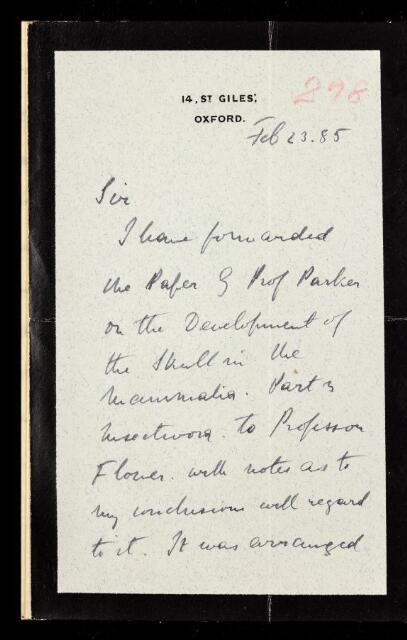 298
14, ST GILES',
OXFORD.
Feb 23. 85
Sir
I have forwarded
the Paper of Prof Parker
on the Development of
the Skull in the
Mammalia. Part
Insectivora. to Professor
Flower. with notes as to
my conclusions with regard
to it. It was arranged